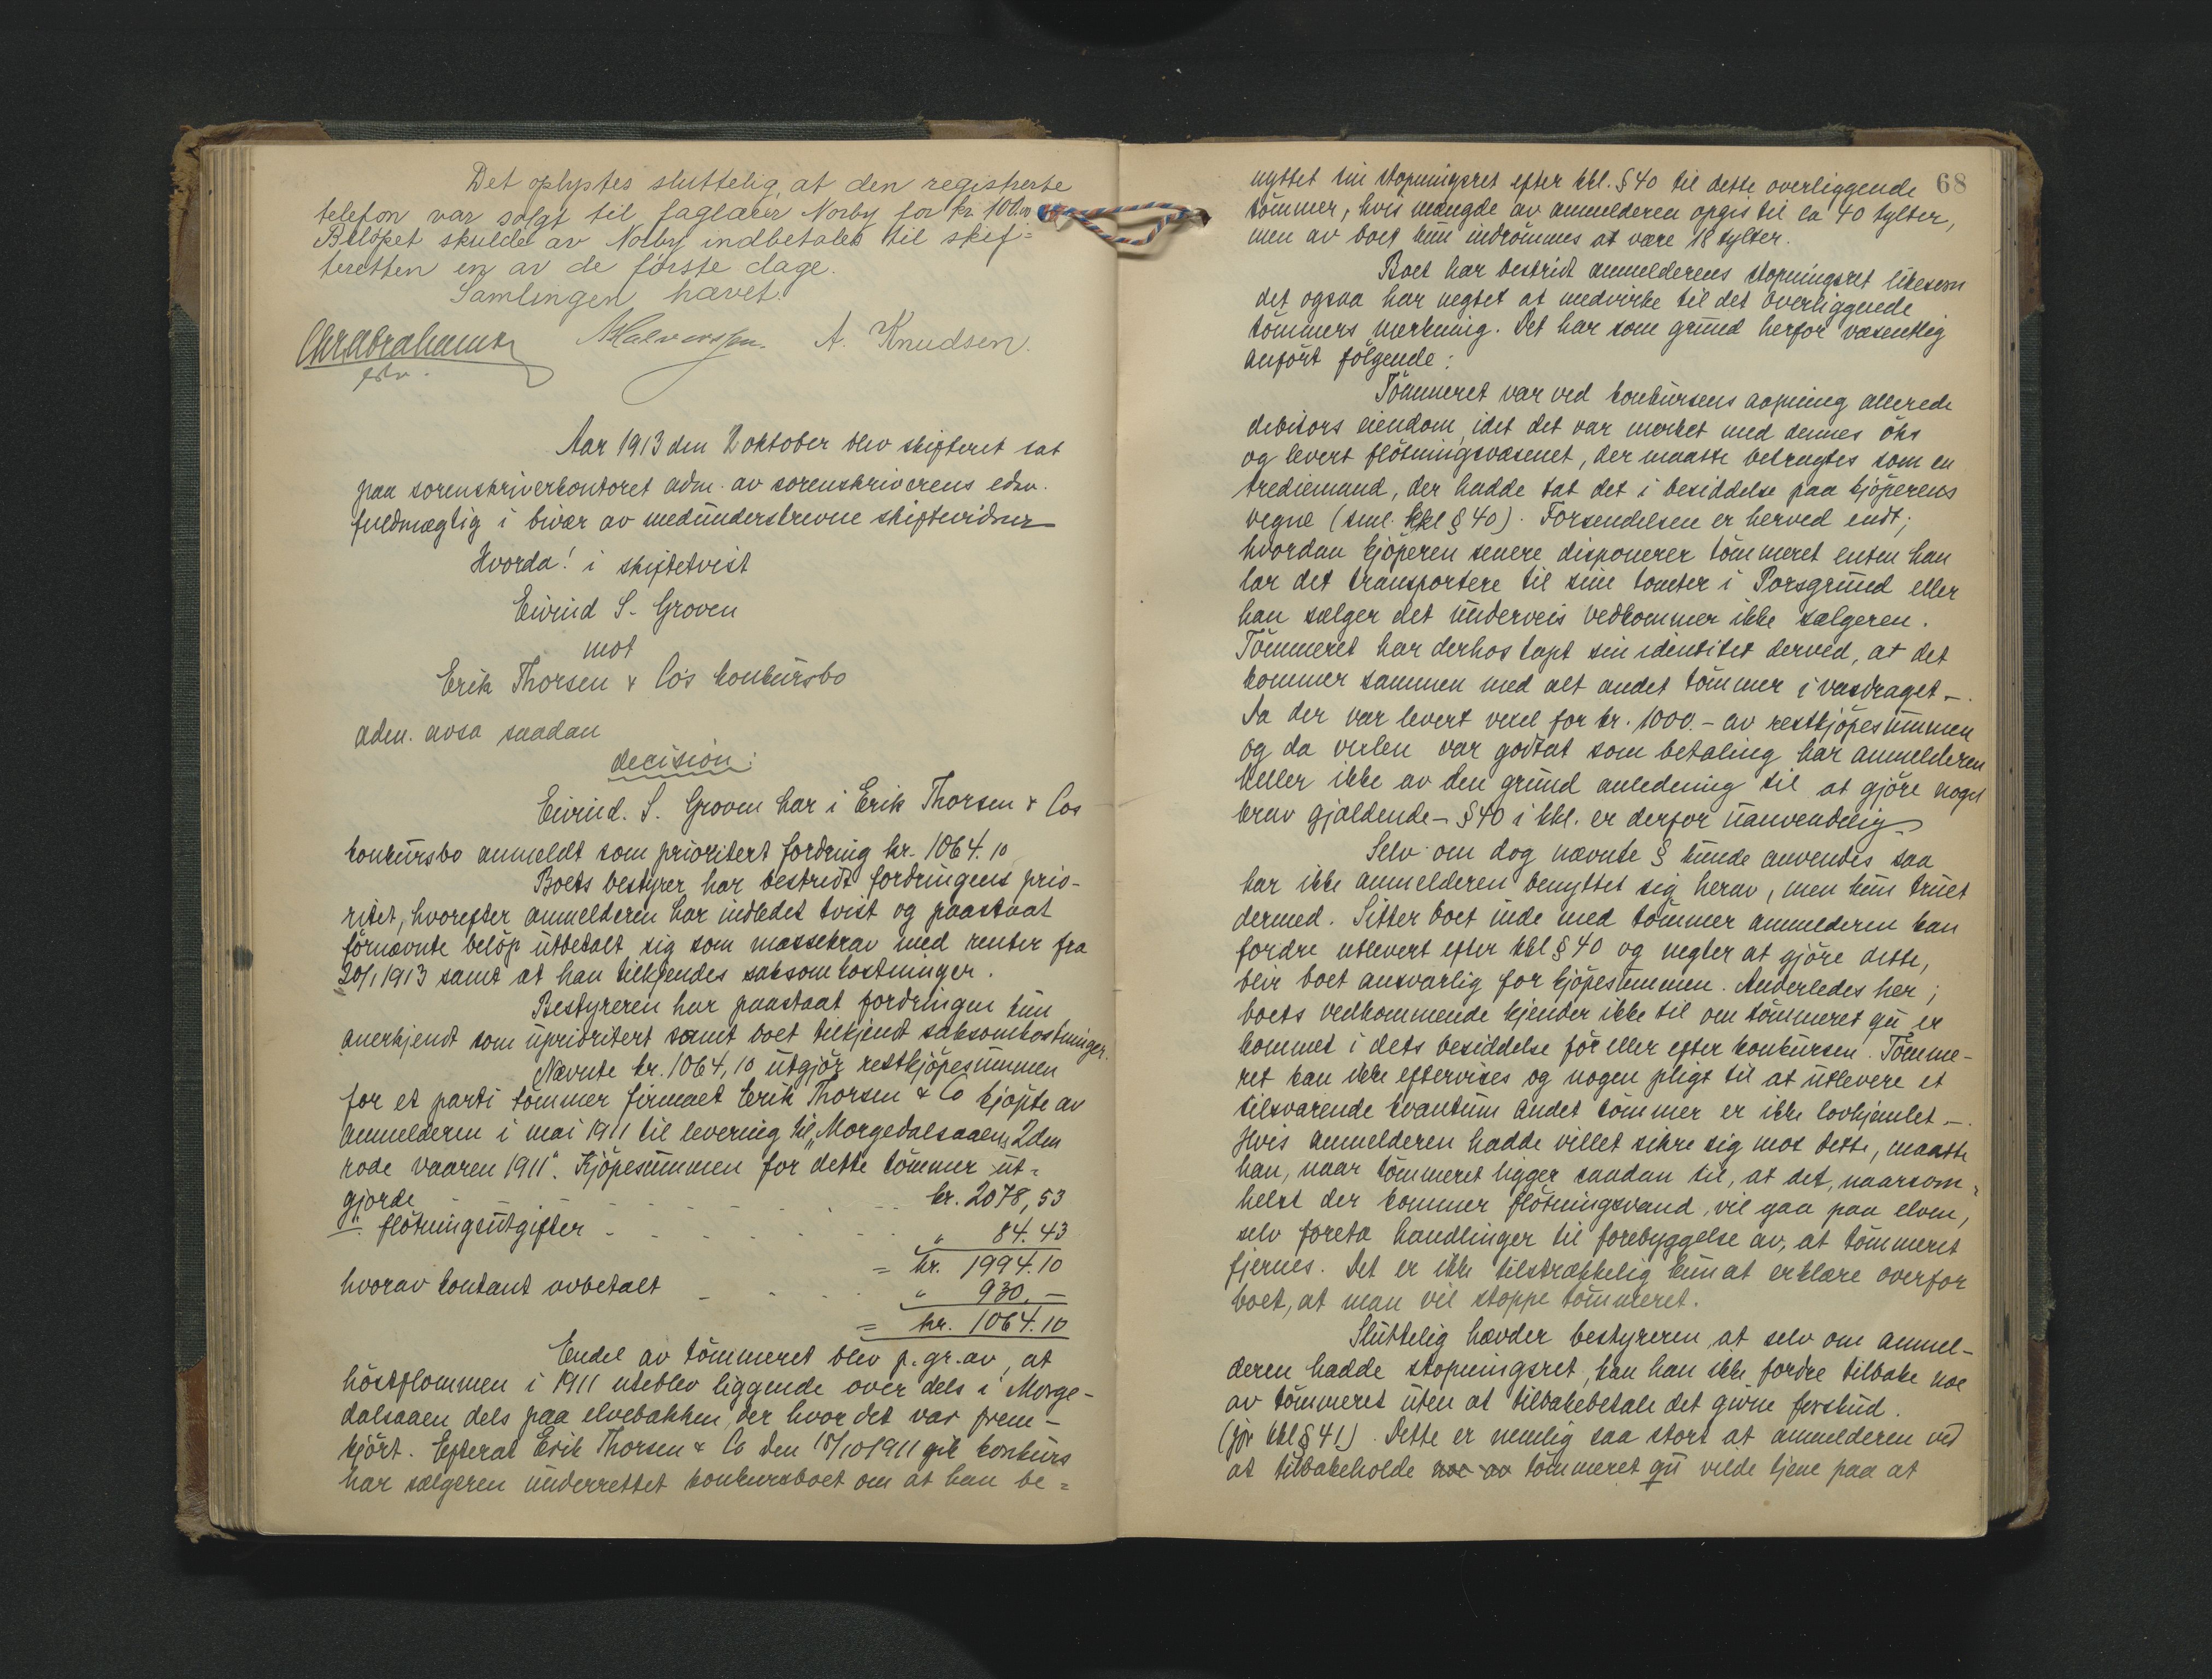 Det oplystes sluttelig, at den registrerte
telefon var solgt til faglærer Norby for kr. 100.00
Beløpet skulde av Norby indbetales til skif-
teretten en av de første dage.
Samlingen hævet.
Chr Abrahamsen Halvorsen. A. Knudsen.
edsv.
Aar 1913 den 2 oktober blev skifteret sat
paa sorenskriverkontoret adm. av sorenskriverens edsv.
fuldmægtig i bivær av medunderskrevne skiftevidner
Hvorda! i skiftetvist
Eivind S. Groven
mot
Erik Thorsen & Co's konkursbo
adm. avsa saadan
decision:
Eivind. S. Groven har i Erik Thorsen & Cos
konkursbo anmeldt som prioritert fordring kr. 1064.10
Boets bestyrer har bestridt fordringens prio-
ritet, hvorefter anmelderen har indledet tvist og paastaat
førnævnte beløp utbetalt sig som massekrav med renter fra
20/1 1913 samt at han tilkjendes saksomkostninger.
Bestyreren har paastaat fordringen kun
anerkjendt som uprioritert samt boet tilkjendt saksomkostninger.
Nævnte kr. 1064,10 utgjør restkjøpesummen
for et parti tømmer firmaet Erik Thorsen & Co kjøpte av
anmelderen i mai 1911 til levering til "Morgedalsaaens 2den
rode vaaren 1911". Kjøpesummen for dette tømmer ut-
gjorde kr. 2078,53
÷ fløtningsutgifter " 84.43
= kr. 1994.10
hvorav kontant avbetalt " 930.—
= kr. 1064.10
Endel av tømmeret blev p. gr. av, at
høstflommen i 1911 uteblev liggende over dels i Morge-
dalsaaen dels paa elvebakken, der hvor det var frem-
kjørt. Efterat Erik Thorsen & Co den 15/10 1911 gik konkurs
har sælgeren underrettet konkursboet om at han be-
68
nyttet sin stopningsret efter kkl. § 40 til dette overliggende
tømmer, hvis mængde av anmelderen opgis til ca 40 tylter,
men av boet kun indrømmes at være 18 tylter.
Boet har bestridt anmelderens stopningsret likesom
det ogsaa har negtet at medvirke til det overliggende
tømmers merkning. Det har som grund herfor væsentlig
anført følgende:
Tømmeret var ved konkursens aapning allerede
debitors eiendom, idet det var merket med dennes øks
og levert fløtningsvæsenet, der maatte betragtes som en
trediemand, der hadde tat det i besiddelse paa kjøperens
vegne (sml. kkl § 40). Forsendelsen er herved endt;
hvordan kjøperen senere disponerer tømmeret enten han
lar det transportere til sine tomter i Porsgrund eller
han sælger det underveis vedkommer ikke sælgeren.
Tømmeret har derhos tapt sin identitet derved, at det
kommer sammen med alt andet tømmer i vasdraget.–
Da der var levert vexel for kr. 1000.– av restkjøpesummen
og da vexlen var godtat som betaling har anmelderen
heller ikke av den grund anledning til at gjøre noget
krav gjældende – § 40 i kkl. er derfor uanvendelig.
Selv om dog nævnte § kunde anvendes saa
har ikke anmelderen benyttet sig herav, men kun truet
dermed. Sitter boet inde med tømmer anmelderen kan
fordre utlevert efter kkl § 40 og negter at gjøre dette,
blir boet ansvarlig for kjøpesummen. Anderledes her;
boets vedkommende kjender ikke til om tømmeret qu. er
kommet i dets besiddelse før eller efter konkursen. Tømme-
ret kan ikke eftervises og nogen pligt til at utlevere et
tilsvarende kvantum andet tømmer er ikke lovhjemlet.–
Hvis anmelderen hadde villet sikre sig mot dette, maatte
han, naar tømmeret ligger saadan til, at det, naarsom-
helst der kommer fløtningsvand, vil gaa paa elven,
selv foreta handlinger til forebyggelse av, at tømmeret
fjernes. Det er ikke tilstrækkelig kun at erklære overfor
boet, at man vil stoppe tømmeret.
Sluttelig hævder bestyreren, at selv om anmel-
deren hadde stopningsret, kan han ikke fordre tilbake noe
av tømmeret uten at tilbakebetale det givne forskud.
(jfr kkl § 41). Dette er nemlig saa stort at anmelderen ved
at tilbakeholde noe av tømmeret qu vilde tjene paa at